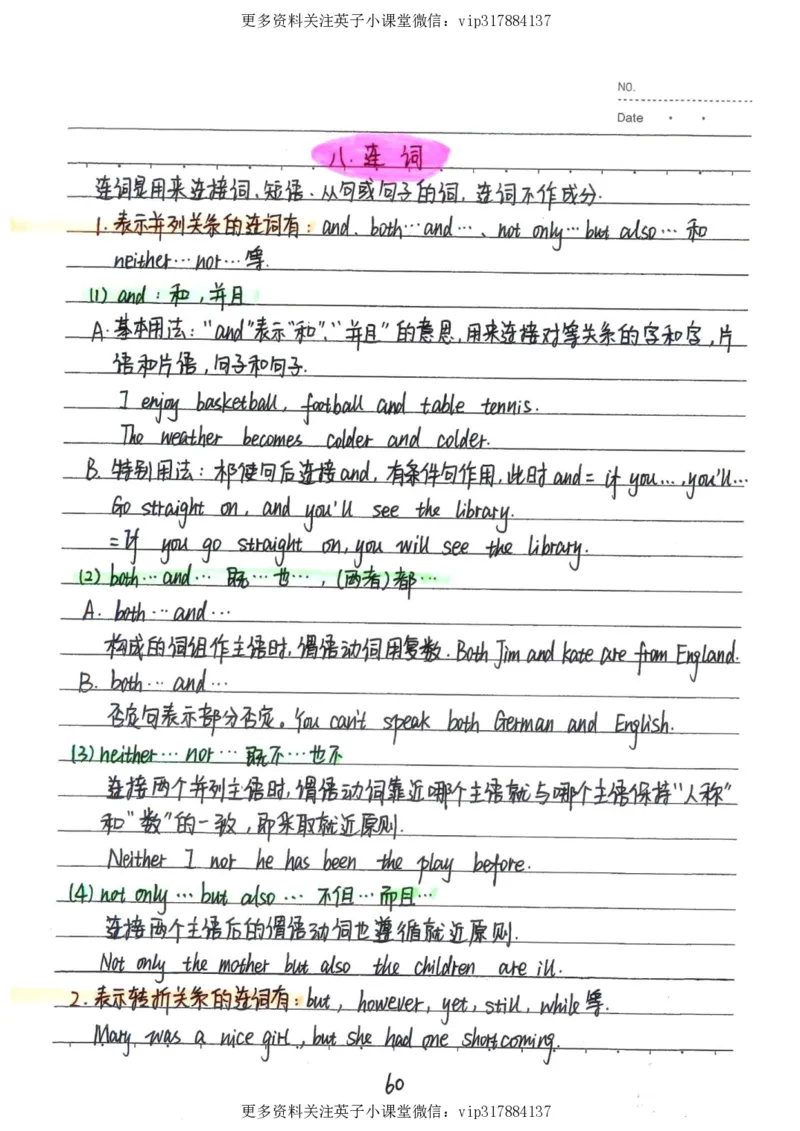 更多资料关注英子小课堂微信：vip317884137
NO.
Date
八.连词
连词是用来连接词、短语、从句或句子的词,连词不作成分.
1.表示并列关系的连词有：and、both…and…、not only…but also…和
neither…nor…等.
(1) and：和,并且
A.基本用法："and"表示"和"、"并且"的意思,用来连接对等关系的字和字,片
语和片语,句子和句子.
I enjoy basketball, football and table tennis.
The weather becomes colder and colder.
B.特别用法：祈使句后连接and,有条件句作用,此时and=if you…,you'll…
Go straight on, and you'll see the library.
=If you go straight on, you will see the library.
(2) both…and… 既…也…,(两者)都…
A. both…and…
构成的词组作主语时,谓语动词用复数. Both Jim and Kate are from England.
B. both…and…
否定句表示部分否定。You can't speak both German and English.
(3) neither…nor…既不…也不
连接两个并列主语时,谓语动词靠近哪个主语就与哪个主语保持"人称"
和"数"的一致,即采取就近原则.
Neither I nor he has been the play before.
(4) not only…but also… 不但…而且…
连接两个主语后的谓语动词也遵循就近原则.
Not only the mother but also the children are ill.
2.表示转折关系的连词有：but, however, yet, still, while等.
Mary was a nice girl, but she had one shortcoming.
60
更多资料关注英子小课堂微信：vip317884137